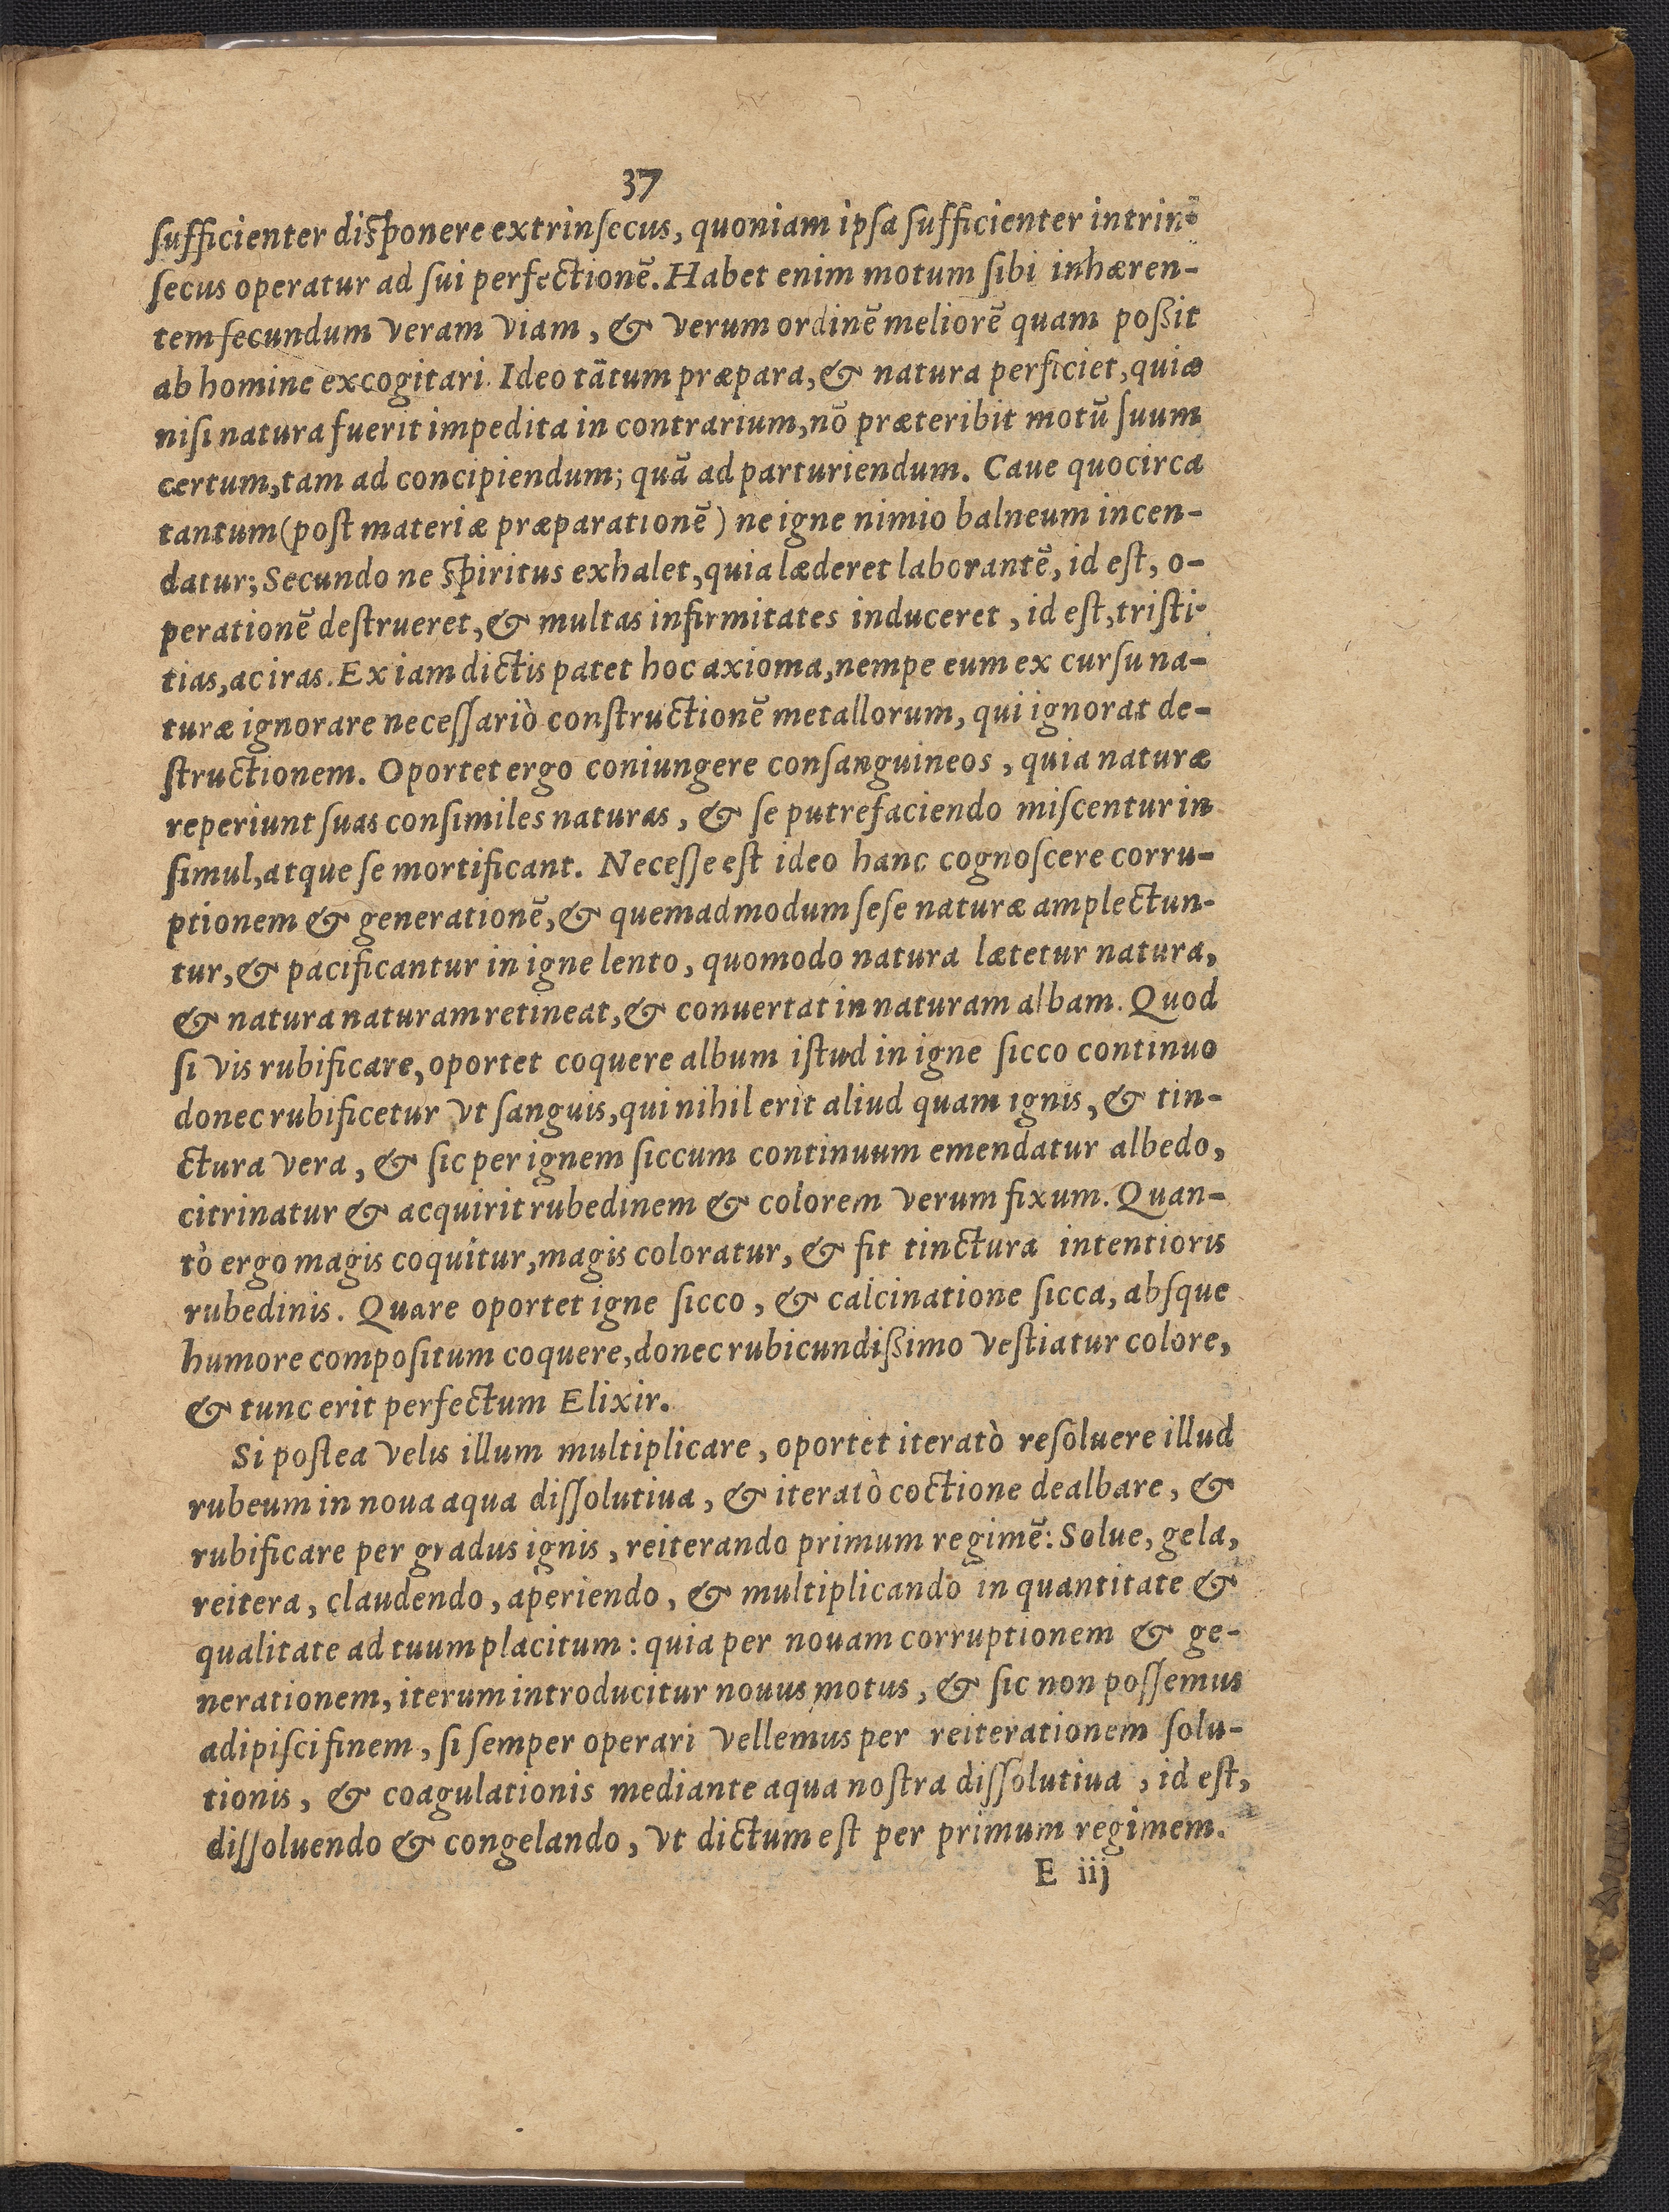 37
ſufficienter diſponere extrinſecus, quoniam ipſa ſufficienter intrin-
ſecus operatur ad ſui perfectionẽ. Habet enim motum ſibi inhæren-
tem ſecundum veram viam, & verum ordinẽ meliorẽ quam poßit
ab homine excogitari. Ideo tãtum præpara, & natura perficiet, quia
niſi natura fuerit impedita in contrarium, nõ præteribit motũ ſuum
certum, tam ad concipiendum; quã ad parturiendum. Caue quocirca
tantum (poſt materiæ præparationẽ) ne igne nimio balneum incen-
datur; Secundo ne ſpiritus exhalet, quia læderet laborantẽ, id eſt, o-
perationẽ deſtrueret, & multas infirmitates induceret, id eſt, triſti-
tias, ac iras. Ex iam dictis patet hoc axioma, nempe eum ex curſu na-
turæ ignorare neceſſariò conſtructionẽ metallorum, qui ignorat de-
ſtructionem. Oportet ergo coniungere conſanguineos, quia naturæ
reperiunt ſuas conſimiles naturas, & ſe putrefaciendo miſcentur in
ſimul, atque ſe mortificant. Neceſſe eſt ideo hanc cognoſcere corru-
ptionem & generationẽ, & quemadmodum ſeſe naturæ amplectun-
tur, & pacificantur in igne lento, quomodo natura lætetur natura,
& natura naturam retineat, & conuertat in naturam albam. Quod
ſi vis rubificare, oportet coquere album iſtud in igne ſicco continuo
donec rubificetur vt ſanguis, qui nihil erit aliud quam ignis, & tin-
ctura vera, & ſic per ignem ſiccum continuum emendatur albedo,
citrinatur & acquirit rubedinem & colorem verum fixum. Quan-
tò ergo magis coquitur, magis coloratur, & fit tinctura intentioris
rubedinis. Quare oportet igne ſicco, & calcinatione ſicca, abſque
humore compoſitum coquere, donec rubicundißimo veſtiatur colore,
& tunc erit perfectum Elixir.
Si poſtea velis illum multiplicare, oportet iteratò reſoluere illud
rubeum in noua aqua diſſolutiua, & iteratò coctione dealbare, &
rubificare per gradus ignis, reiterando primum regimẽ: Solue, gela,
reitera, claudendo, aperiendo, & multiplicando in quantitate &
qualitate ad tuum placitum: quia per nouam corruptionem & ge-
nerationem, iterum introducitur nouus motus, & ſic non poſſemus
adipiſci finem, ſi ſemper operari vellemus per reiterationem ſolu-
tionis, & coagulationis mediante aqua noſtra diſſolutiua, id eſt,
diſſoluendo & congelando, vt dictum eſt per primum regimem.
E iij